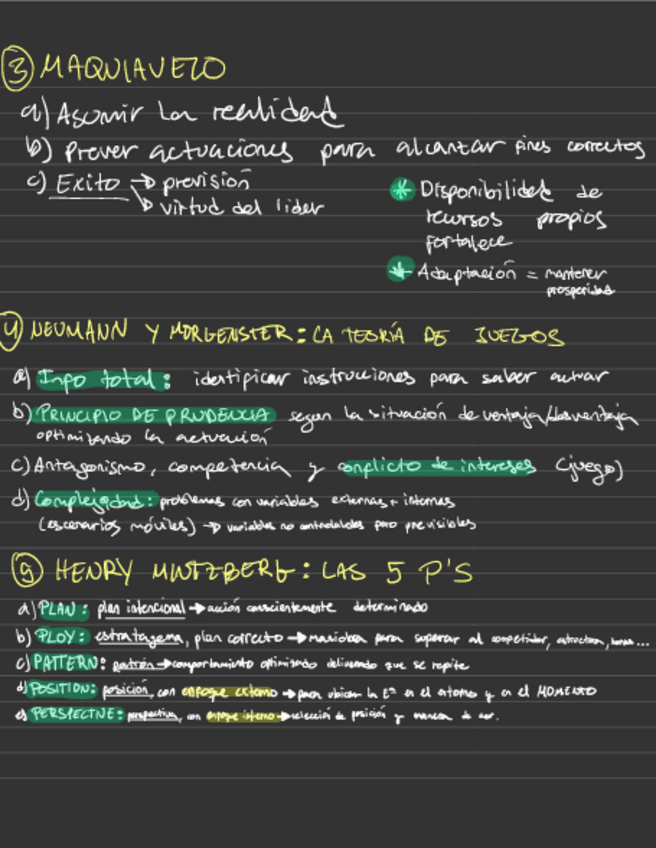 ③ MAQUIAVELO
a) Asumir la realidad
b) Prever actuaciones para alcanzar fines correctos
c) Exito → previsión
→ virtud del líder
* Disponibilidad de
recursos propios
fortalece
* Adaptación = mantener
prosperidad
④ NEUMANN Y MORGENSTER: LA TEORÍA DE JUEGOS
a) Info total: identificar instrucciones para saber actuar
b) PRINCIPIO DE PRUDENCIA segun la situación de ventaja/desventaja
optimizando la actuación
c) Antagonismo, competencia y conflicto de intereses (juego)
d) Complejidad: problemas con variables externas + internas
(escenarios móviles) → variables no controlables pero previsibles
⑤ HENRY MINTZBERG: LAS 5 P'S
a) PLAN: plan intencional → acción conscientemente determinado
b) PLOY: estratagema, plan correcto → maniobra para superar al competidor, estructura, ...
c) PATTERN: patrón → comportamiento optimizado que se repite
d) POSITION: posición, con enfoque externo → para ubicar la Eª en el entorno y en el MOMENTO
e) PERSPECTIVE: perspectiva, con enfoque interno → selección de posición y manera de ser.